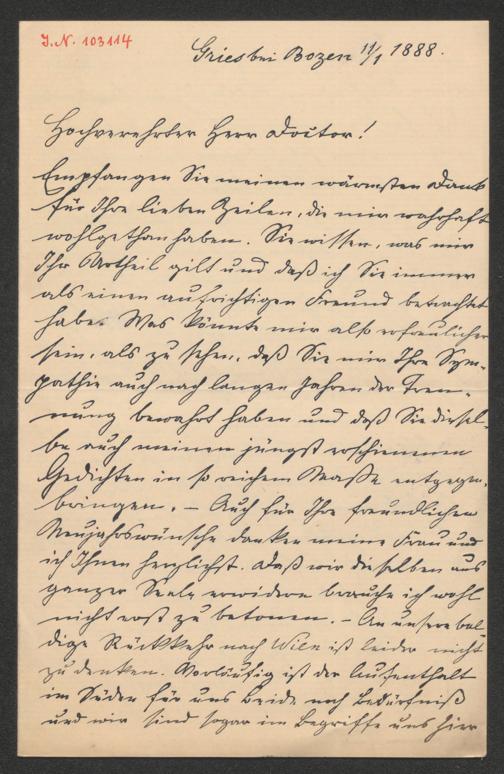 J. N. 103114
Gries bei Bozen 11/1 1888.
Hochverehrter Herr Doctor!
Empfangen Sie meinen wärmsten Dank
für Ihre lieben Zeilen, die mir wahrhaft
wohlgethan haben. Sie wissen, was mir
Ihr Urtheil gilt und daß ich Sie immer
als einen aufrichtigen Freund betrachtet
habe. Was könnte mir also erfreulicher
sein, als zu sehen, daß Sie mir Ihre Sym-
pathie auch nach langen Jahren der Tren-
nung bewahrt haben und daß Sie diesel-
be auch meinen jüngst erschienenen
Gedichten in so reichem Maße entgegen-
bringen. – Auch für Ihre freundlichen
Neujahrswünsche danken meine Frau und
ich Ihnen herzlichst. Daß wir dieselben aus
ganzer Seele erwidern brauche ich wohl
nicht erst zu betonen. – An unsere bal-
dige Rückkehr nach Wien ist leider nicht
zu denken. Vorläufig ist der Aufenthalt
im Süden für uns Beide noch Bedürfniß
und wir sind sogar im Begriffe uns hier